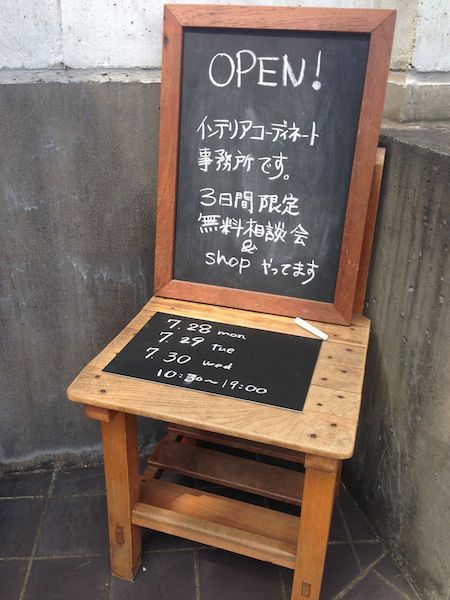 OPEN!
インテリアコーディネート
事務所です。
3日間限定
無料相談会
&
shop やってます
7.28 mon
7.29 Tue
7.30 wed
10:30〜19:00